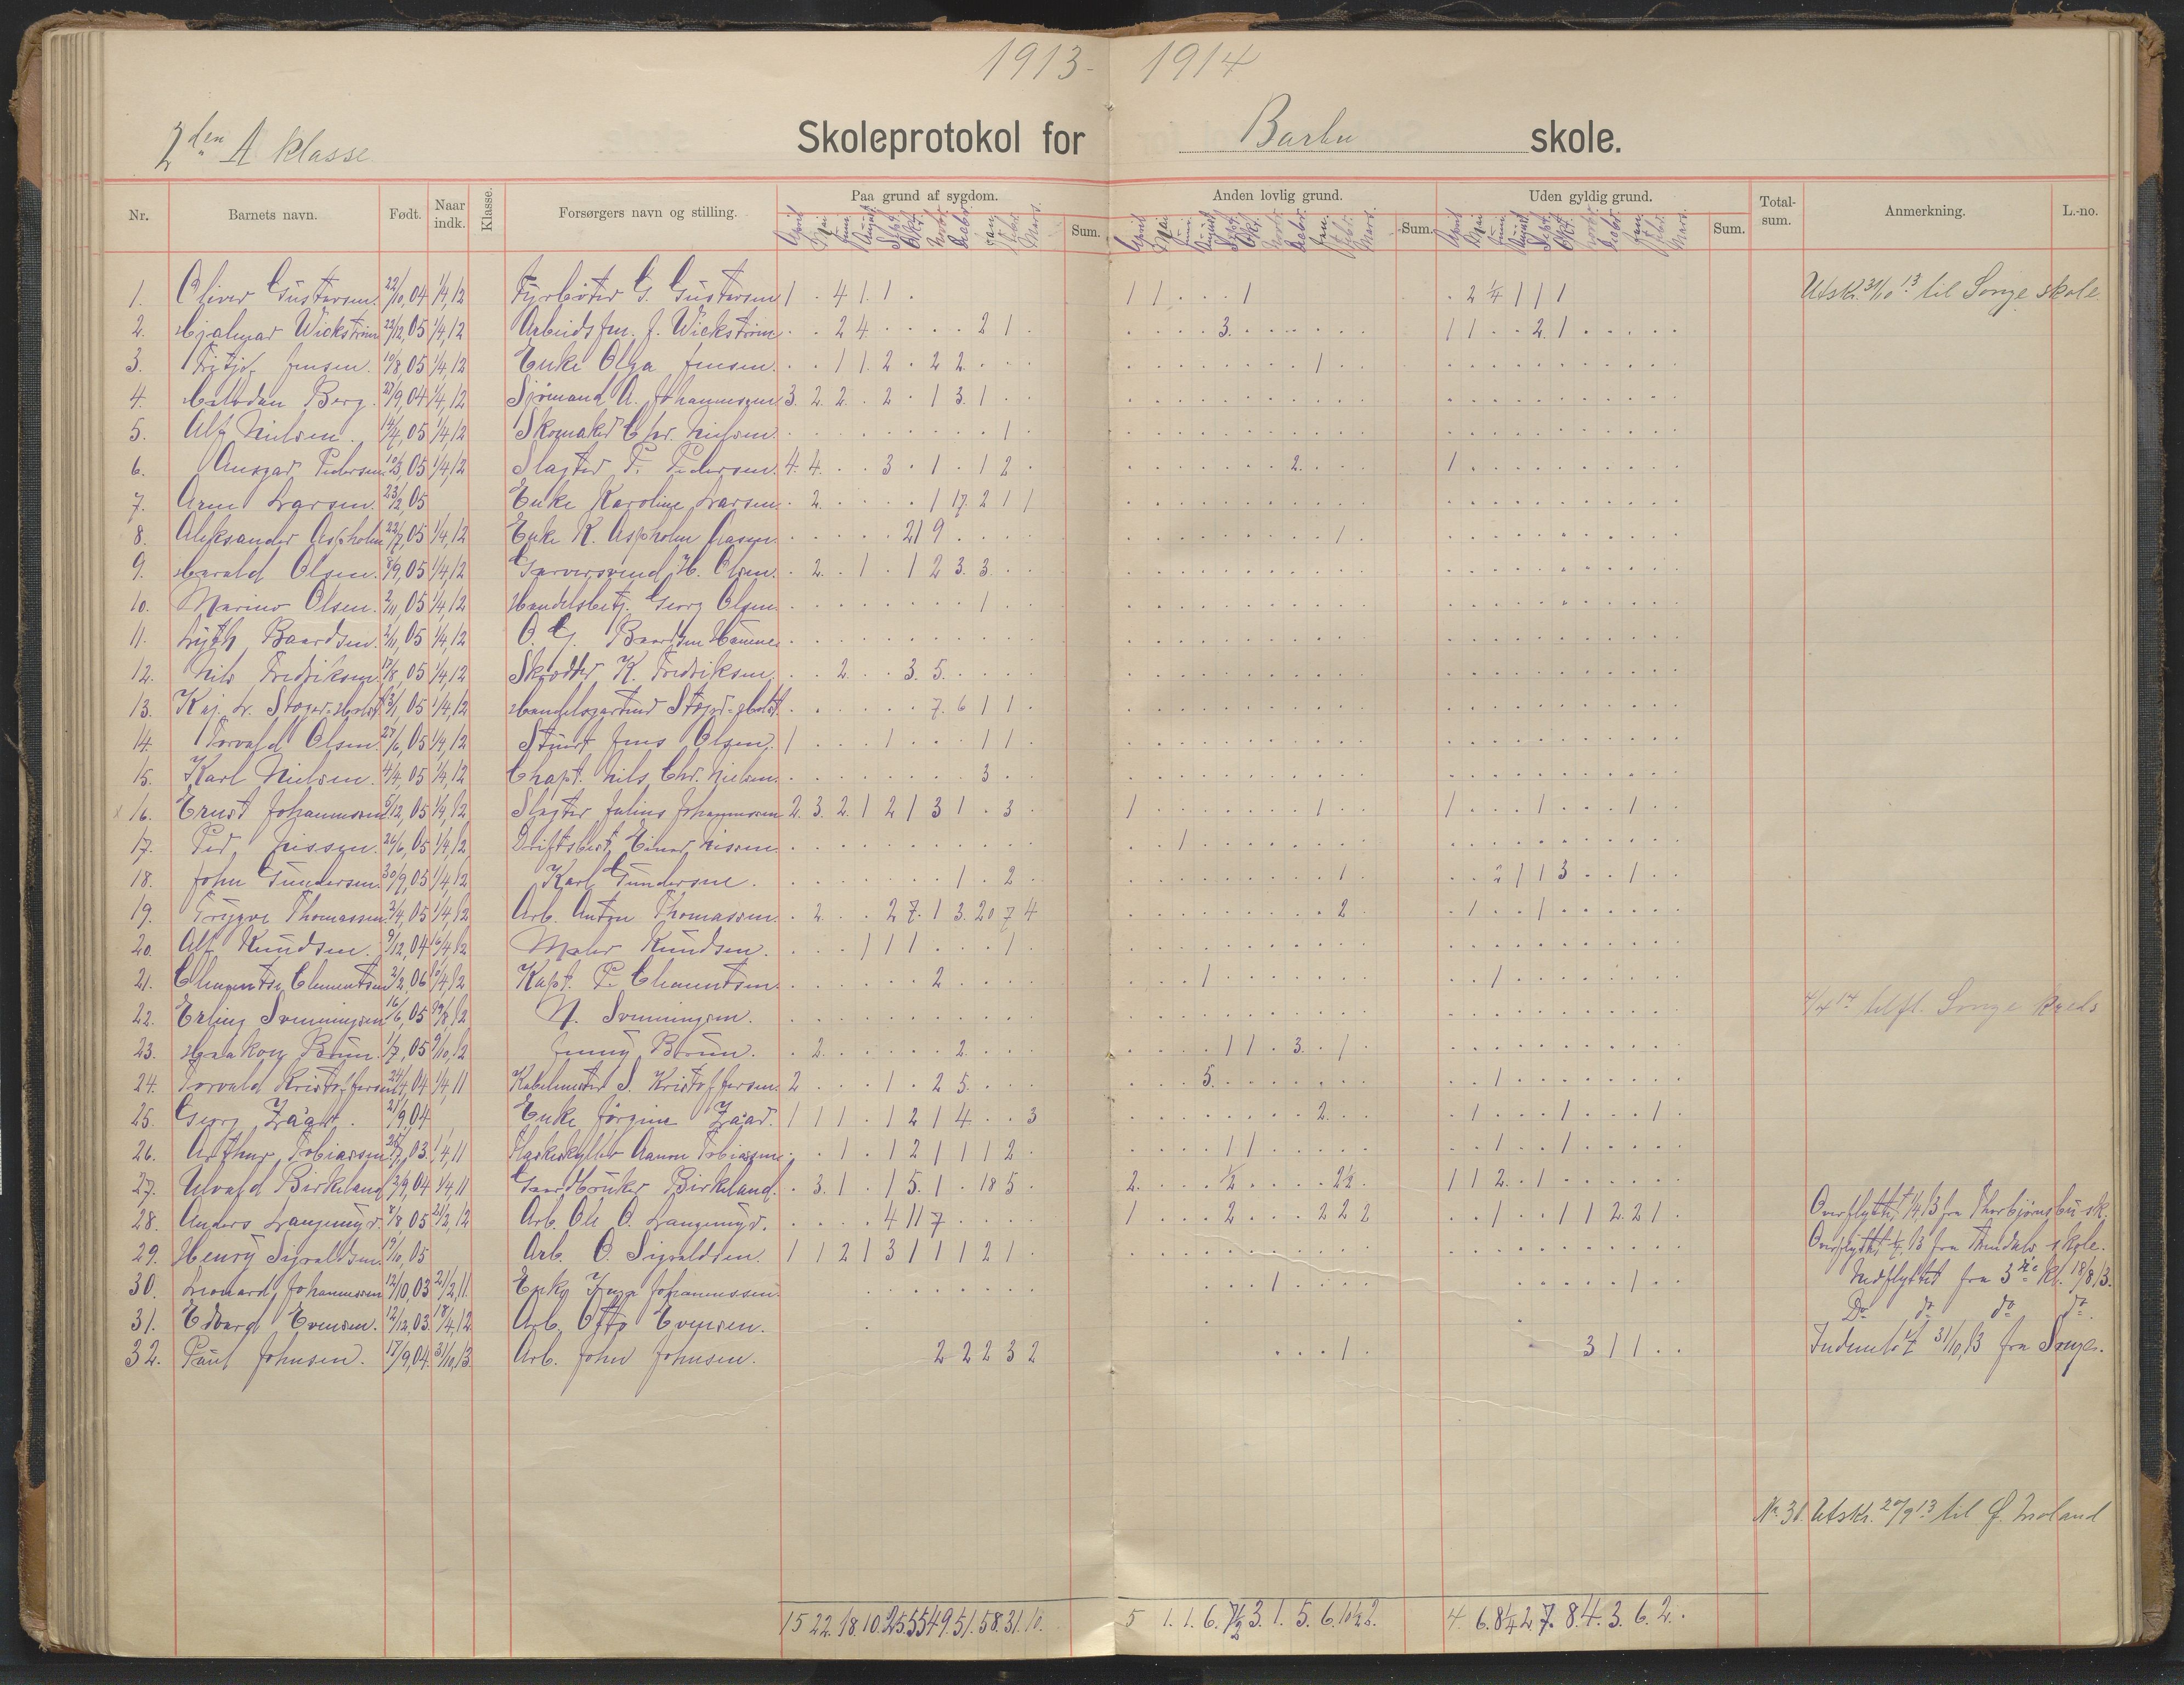 1913- 1914
2den A klasse
Skoleprotokol for Barbu skole.
Nr. Barnets navn. Født. Naar indk. Klasse. Forsørgers navn og stilling. Paa grund af sygdom. Sum. Anden lovlig grund. Sum. Uden gyldig grund. Sum. Total-sum. Anmerkning. L.-no.
April Mai Juni August Sept. Okt. Novbr. Decbr. Jan. Febr. Mars. April Mai Juni August Sept. Okt. Novbr. Decbr. Jan. Febr. Mars. April Mai Juni August Sept. Okt. Novbr. Decbr. Jan. Febr. Mars.
1. Oliver Gustavsen. 22/10,04 1/4,12 Fyrbøter G. Gustavsen 1 . 4 1 1 . 1 1 . . . 1 . 2 1/4 1 1 1 Utskr. 31/10 13 til Songe skole.
2. Hjalmar Wickstrøm 22/12,05 1/4,12 Arbeidsfm. J. Wickstrøm . . 2 4 . . . . 2 1 . 3. 1 1 . . 2 1
3. Fritjof Jensen. 10/8,05 1/4,12 Enke Olga Jensen. . . 1 1 2 . 2 2 . . . 1
4. Halvdan Berg. 27/9,04 1/4,12 Sjømand A. Johannessen 3. 2. 2. . 2 . 1 3. 1 . .
5. Alf Nielsen. 14/4,05 1/4,12 Skomaker Chr. Nielsen. 1
6. Ansgar Pedersen. 10/3,05 1/4,12 Slagter P. Pedersen. 4. 4. . . 3 . 1 . 1 2 . 2. 1
7. Arne Larsen. 23/2,05 Enke Karoline Larsen. . 2. . . . . 1 17. 2 1 1
8. Aleksander Aspholm 22/7,05 1/4,12 Enke K. Aspholm 21 9 1
9. Harald Olsen. 8/9,05 1/4,12 Garversvend H. Olsen. . 2. . 1 . 1 2 3. 3 . .
10. Marino Olsen. 2/11,05 1/4,12 Handelsbetj. Georg Olsen. 1
11. Baardsen. 2/11,05 1/4,12 O. G. Baardsen
12. Nils Fredriksen. 17/8,05 1/4,12 Skrædder K. Fredriksen. . . 2. . . 3. 5.
13. Kaj. 05 1/4,12 Handelsgartner 7. 6 1 1 .
14. Torvald Olsen. 27/6,05 1/4,12 Stuert Jens Olsen. 1 . . . 1 . . . 1 1 .
15. Karl Nielsen. 4/4,05 1/4,12 Nils Chr. Nielsen. 3
16. Ernst Johannessen 5/12,05 1/4,12 Slagter Julius Johannessen 2. 3. 2. 1 2 1 3 1 . 3 . 1 1 1 . . . 1 . . . 1
17. Per Nissen. 26/6,05 1/4,12 Driftsbest. Einar Nissen. 1
18. John Gundersen. 30/9,05 1/4,12 Karl Gundersne. 1 . 2 . 1 . . 2 1 1 3 . . 1
19. Trygve Thomassen. 3/4,05 1/4,12 Arb. Anton Thomassen. . 2 . . 2 7. 1 3. 20 7 4 2 . 1 . . 1
20. Alf Knudsen. 9/12,04 16/4,12 Maler Knudsen. . . . 1 1 1 . . . 1 .
21. Clementsen 2/2,06 Kapt. P. 2 1 1
22. Erling Svenningsen 16/6,05 N. Svenningsen. 4/4 14 tilfl. Songe
23. Haakon Brun. 1/7,05 9/10,12 Jenny Brun. . 2. . . . . . 2. 1 1 . 3. . 1
24. Torvald Kristoffersen 24/4,04 1/4,11 Kabelmester S. Kristoffersen. 2 . . . 1 . 2 5. 5. 1
25. Georg 21/9,04 Enke Jørgine 1 1 1 . 1 2 1 4 . . 3 2. . 1 . . . 1 . . . . 1
26. Arthur Tobiassen 03 1/4,11 Aanon Tobiassen . . 1 . 1 2 1 1 1 2 . 1 1 1 . . 1
27. Birkeland 04 1/4,11 Gaardbruker Birkeland. . 3. 1 . 1 5. 1 . 18 5 . 2. 1/2 2 1/2. 1 1 2. . 1
28. Anders Langemyr. 8/8 05 21/2,12 Arb. Ole O. Langemyr. 4 11 7 1 . . . 2 . . . 2 2 2 . . 1 . . 1 1 2. 2 1 . Overflyttet 1/4 13 fra Thorbjørnsbu sk.
29. Henry Sigvaldsen. 19/10,05 Arb. O. Sigvaldsen. 1 1 2 1 3 1 1 1 2 1 . Overflyttet 13 fra skole.
30. Leonard Johannessen 12/10 03 21/2,11 Enke Inga Johannessen. 1 1 Indflyttet fra 3de Kl. 18/8 13.
31. Edvard Evensen. 12/12,03 18/4,12 Arb. Otto Evensen. Do do do do.
32. Paul Johnsen. 17/9,04 31/10,13 Arb. John Johnsen. 2 2 2 3 2 1 3 1 1 Indmeldt 31/10,13 fra Songe.
No 31. Utskr. 20/9 13 til Ø. Moland
15 22. 18. 10. 25. 55 49. 51. 58. 31. 10. 5 1. 1. 6. 7 1/2 3. 1. 5. 6. 10 1/2 2. 4. 6. 8 1/4 2. 7. 8. 4. 3. 6. 2. .